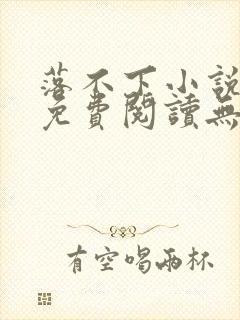 落不下小說
免費閱讀無
有空喝兩杯